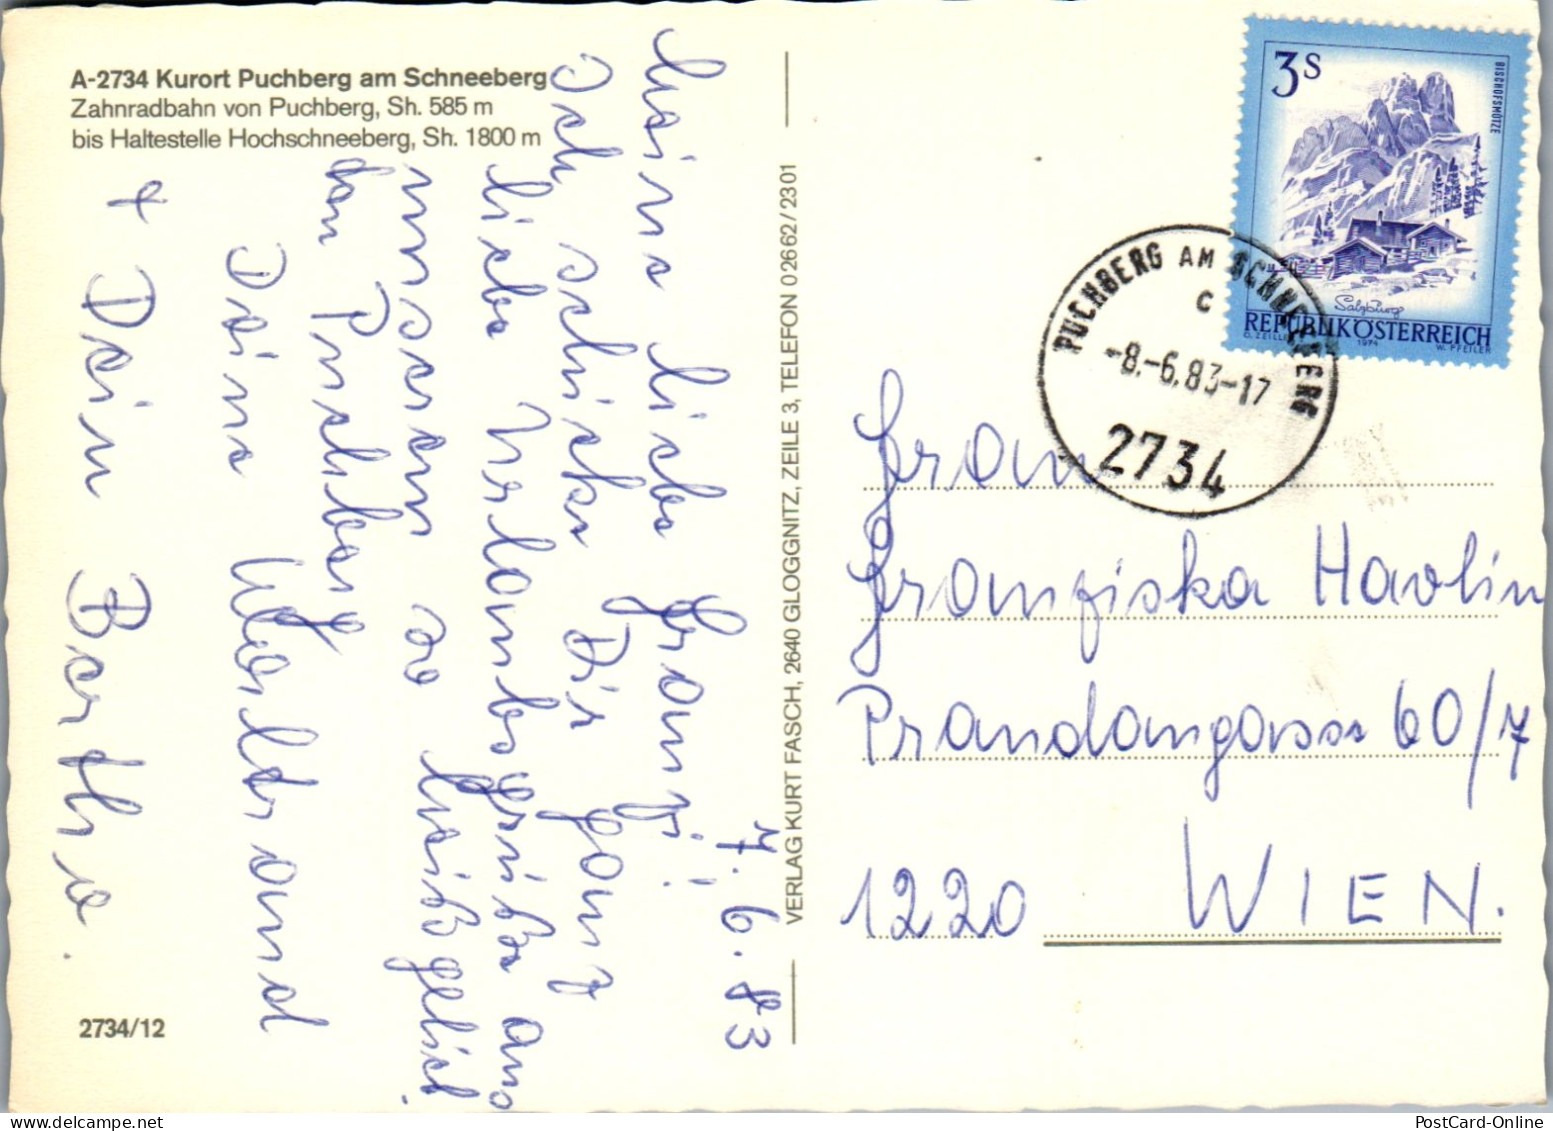 A-2734 Kurort Puchberg am Schneeberg
Zahnradbahn von Puchberg, Sh. 585 m
bis Haltestelle Hochschneeberg, Sh. 1800 m
7. 6. 83
Meine liebe Franzi!
Ich schicke Dir ganz
liebe Urlaubsgrüße aus
unserem so
den Puchberg
Deine
+ Dein Bertha.
2734/12
VERLAG KURT FASCH, 2640 GLOGGNITZ, ZEILE 3, TELEFON 0 26 62 / 23 01
3 S
BISCHOFSMÜTZE
Salzburg
REPUBLIK ÖSTERREICH
O. ZEILLER 1974 W. PFEILER
PUCHBERG AM SCHNEEBERG
C
-8.-6.83-17
2734
Frau
Franziska Havlin
Prandaugasse 60/7
1220 WIEN.
PostCard-Online